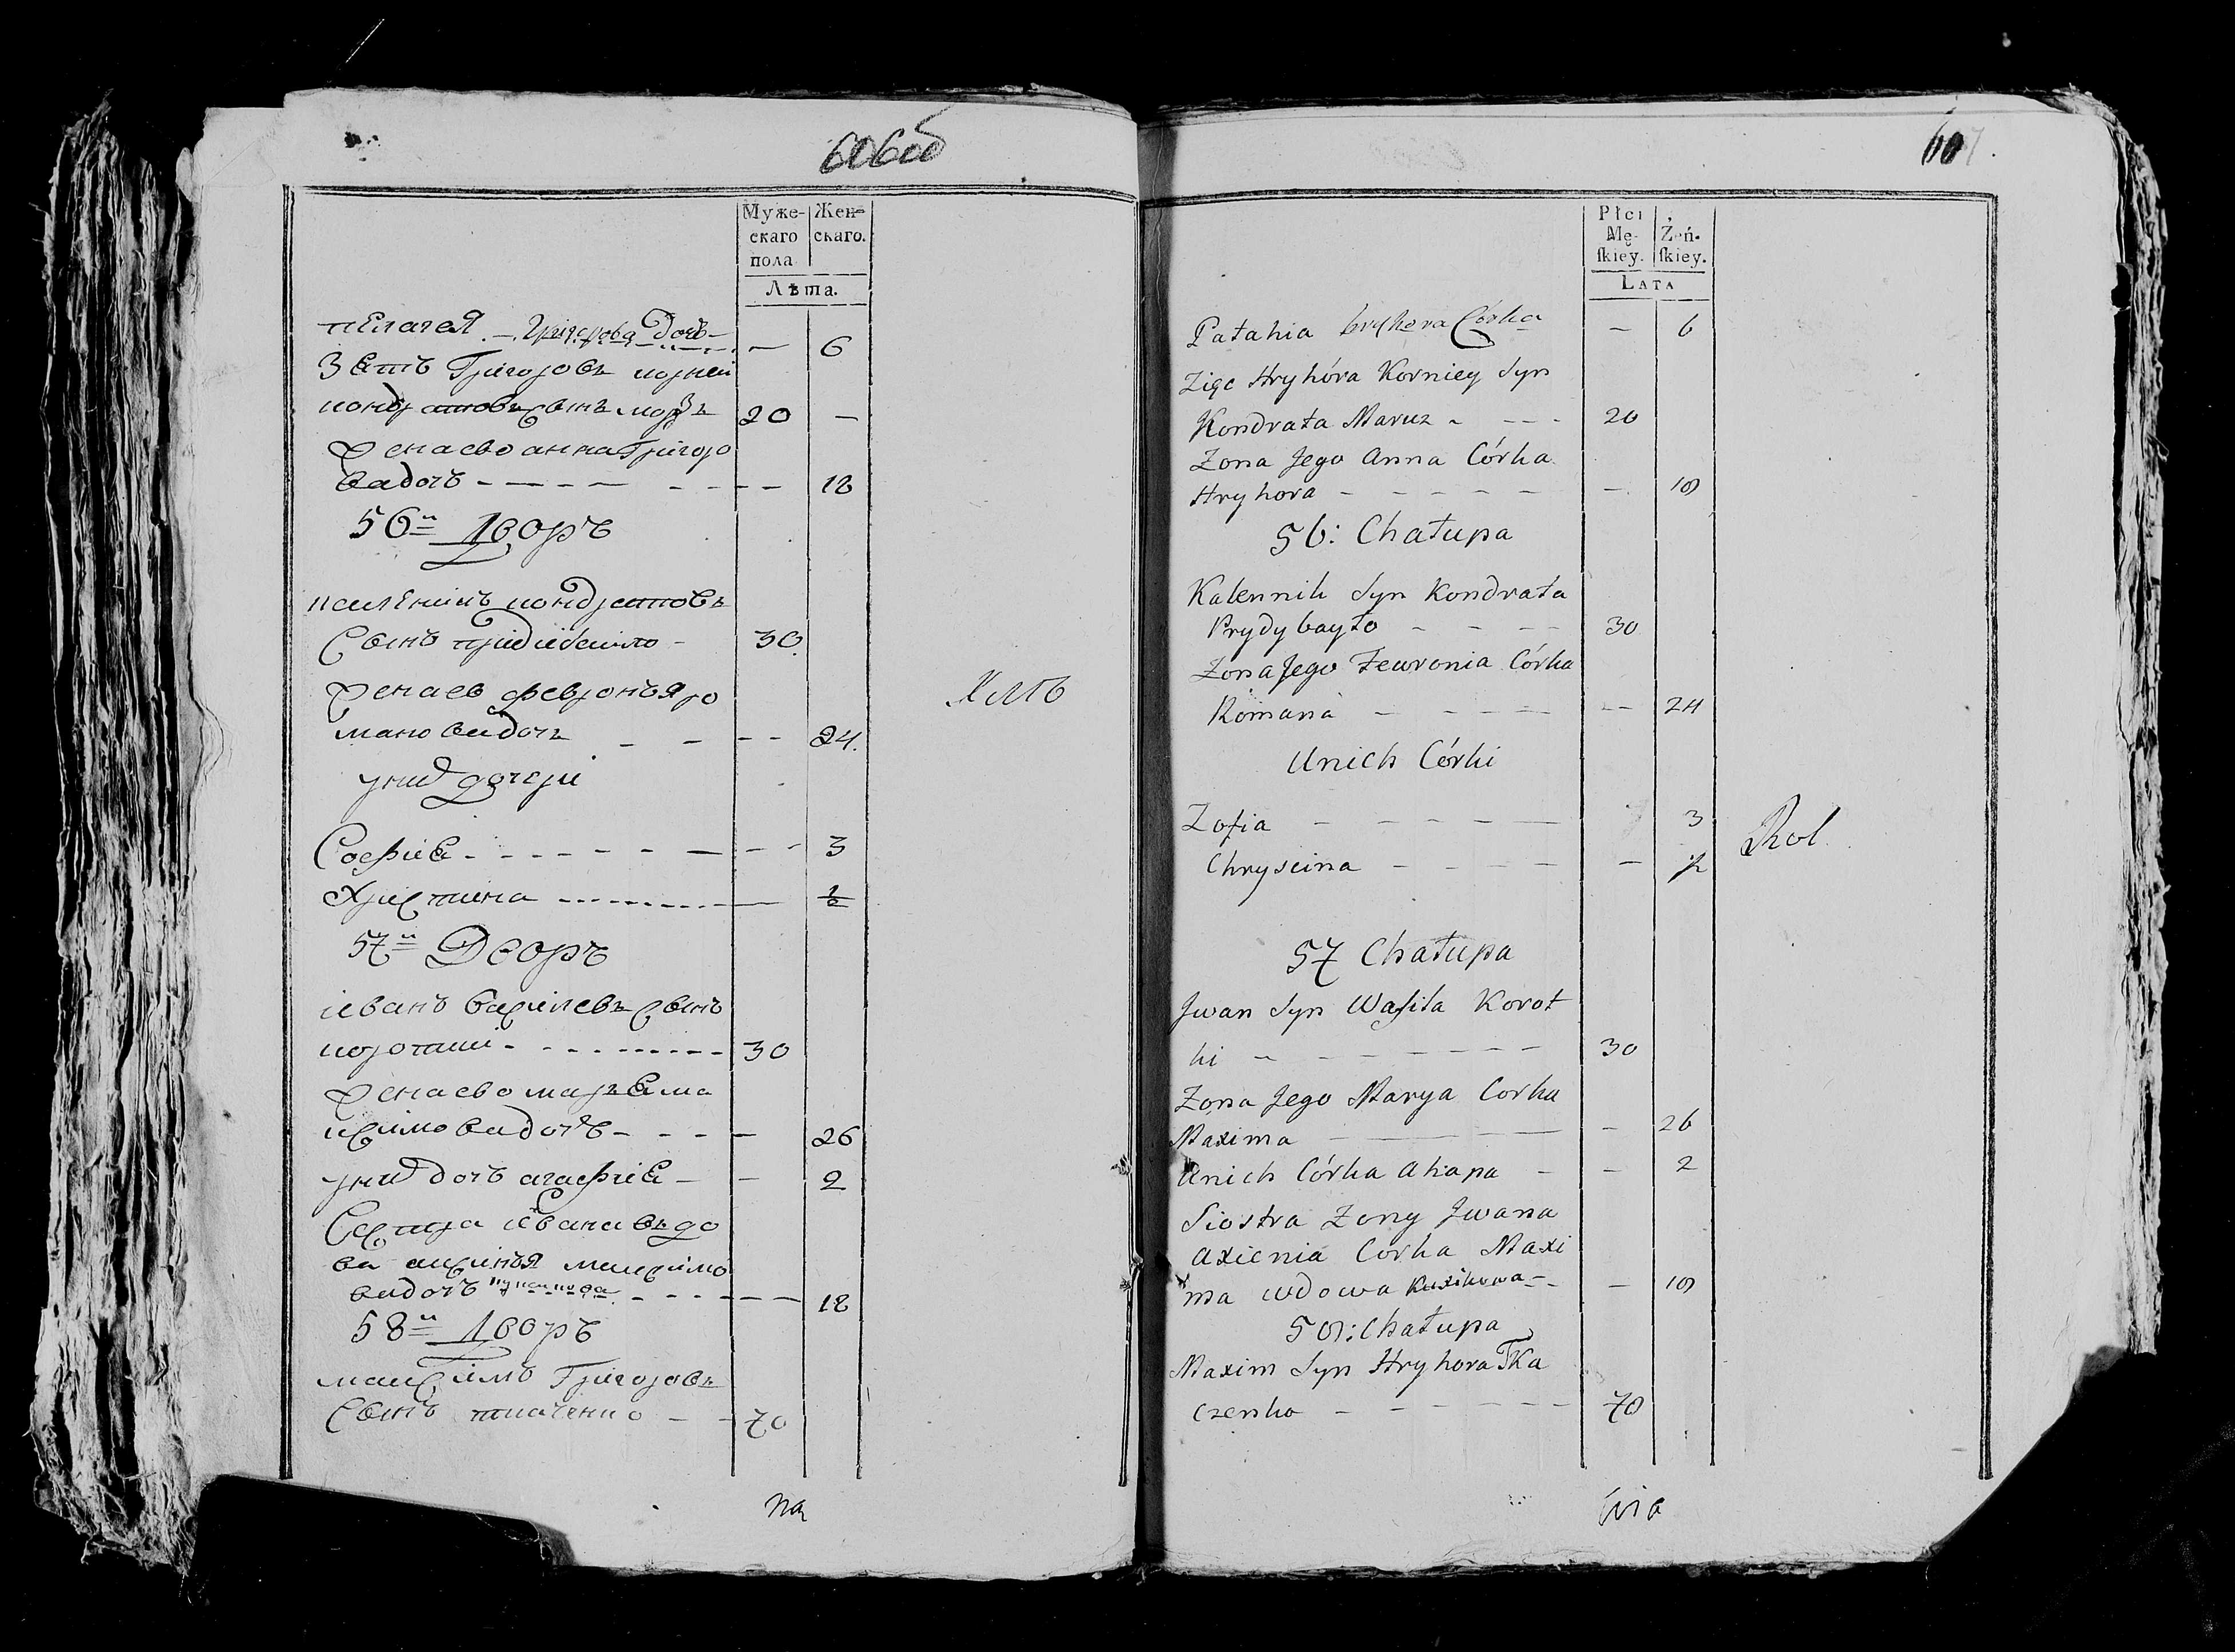 606об
Муже-
скаго
пола
Жен-
скаго.
Лѣта.
пелагея Григорова Дочь — 6
Зять Григоровъ корней
кондратовъ сынъ морзъ 20 —
Жена ево анна Григоро
ва дочь 18
56й Дворъ
калѣникъ кондратовъ
Сынъ придибайло 30.
Жена ев февронья ро
мано ва дочь 24.
у них дочери
Софиѣ 3
Христина 1/2
57й Дворъ
иванъ василевъ сынъ
короткий 30
Жена ево марья ма
ксимо ва дочь 26
у них дочь агафиѣ — 2
Сестра ивана вдо
ва аксинья максимо
ва дочь 18
58й Дворъ
максимъ Григоровъ
Сынъ ткаченко 70
Хлѣб
на
607.
Płci
Mę-
skiey.
Żeń-
skiey.
Lata
Patahia hryhora Córka — 6
Zięc Hryhóra Korniey Syn
Kondrata Maruz 20
Zona Jego Anna Córka
Hryhora — 18
56: Chałupa
Kalennik Syn Kondrata
Prydybayło 30
Zona Jego Fewronia Córka
Romana — 24
Unich Córki
Zofia 3
Chryscina — 1/2
57 Chałupa
Jwan Syn Wasila Korot
ki 30
Zona Jego Marya Corka
Maxima — 26
Unich Córka Ahapa — 2
Siostra Zony Jwana
Axienia Corka Maxi
ma wdowa — 18
58: Chałupa
Maxim Syn Hryhora Tka
czenko 70
Rol.